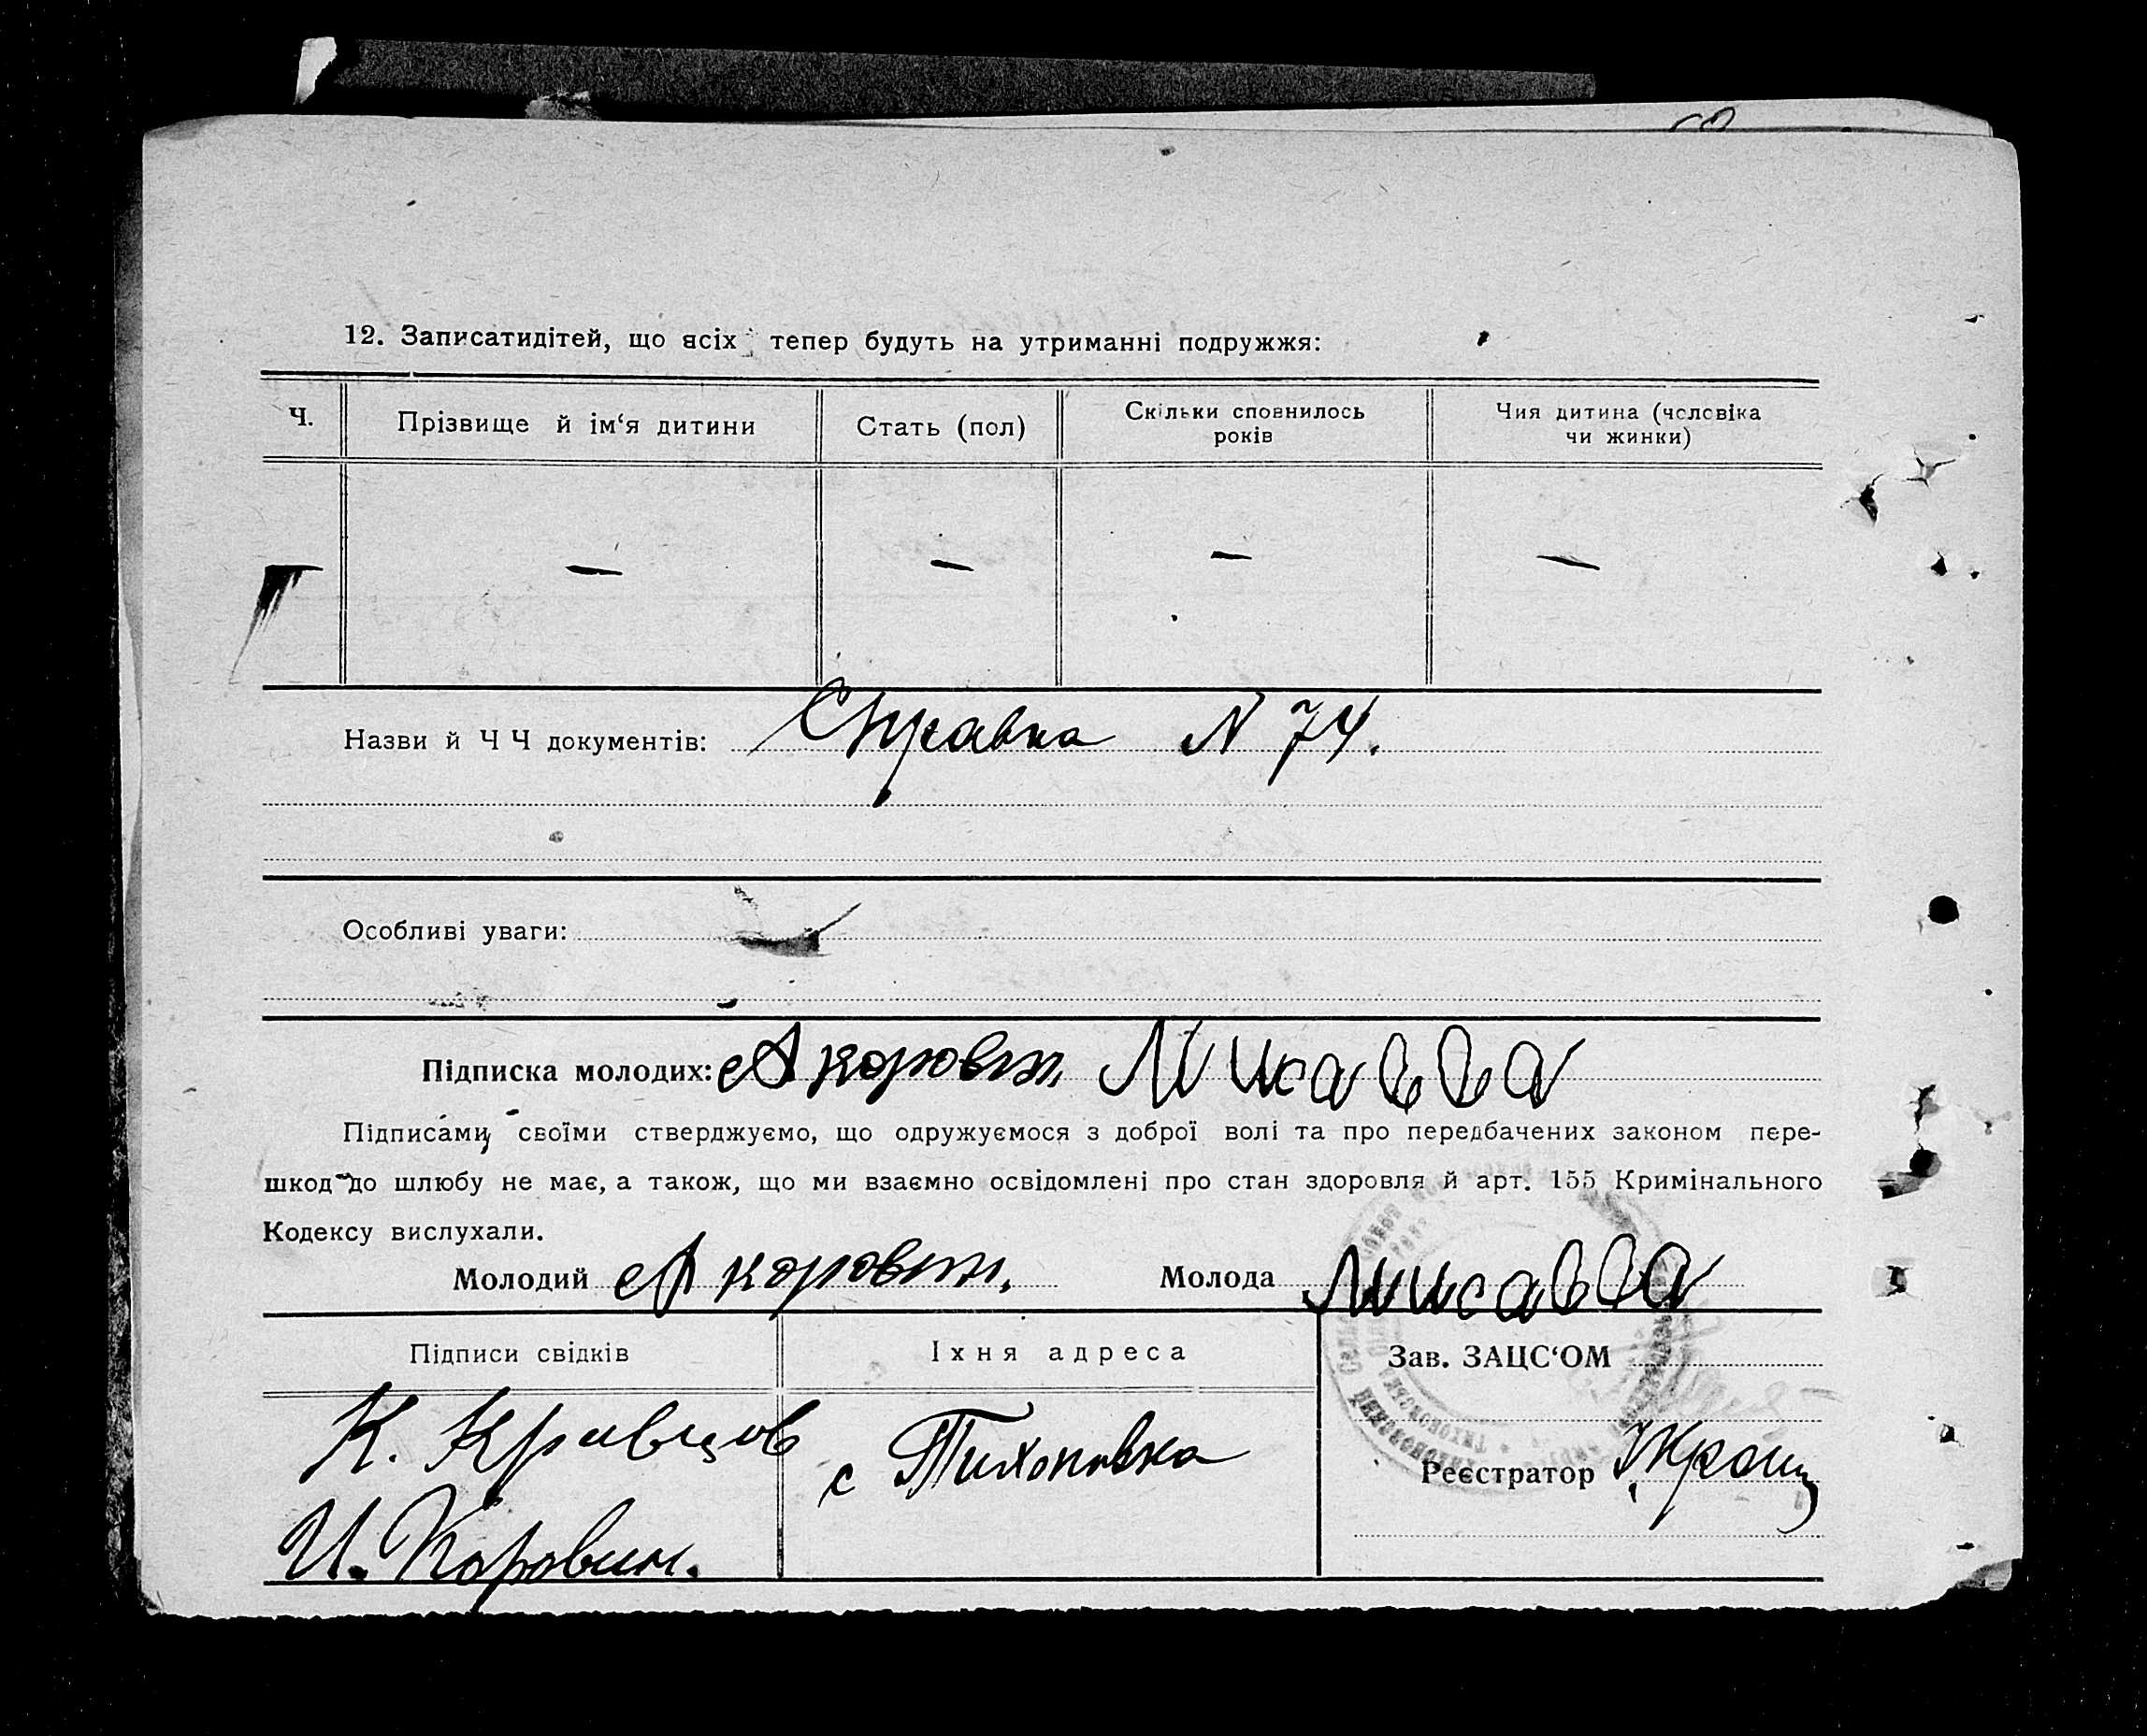 12. Записатидітей, що всіх тепер будуть на утриманні подружжя:
Ч.
Прізвище й ім‘я дитини
Стать (пол)
Скільки сповнилось
років
Чия дитина (чоловіка
чи жинки)
— — — — —
Назви й Ч Ч документів: Справка N 74.
Особливі уваги:
Підписка молодих: А коровин,
Підписами своїми стверджуємо, що одружуємося з доброї волі та про передбачених законом пере-
шкод до шлюбу не має, а також, що ми взаємно освідомлені про стан здоровля й арт. 155 Кримінального
Кодексу вислухали.
Молодий А коровин. Молода
Підписи свідків
Їхня адреса
Зав. ЗАЦС‘ОМ
К. Кравцов
с Тихоновка
Реєстратор
И. Коровин.